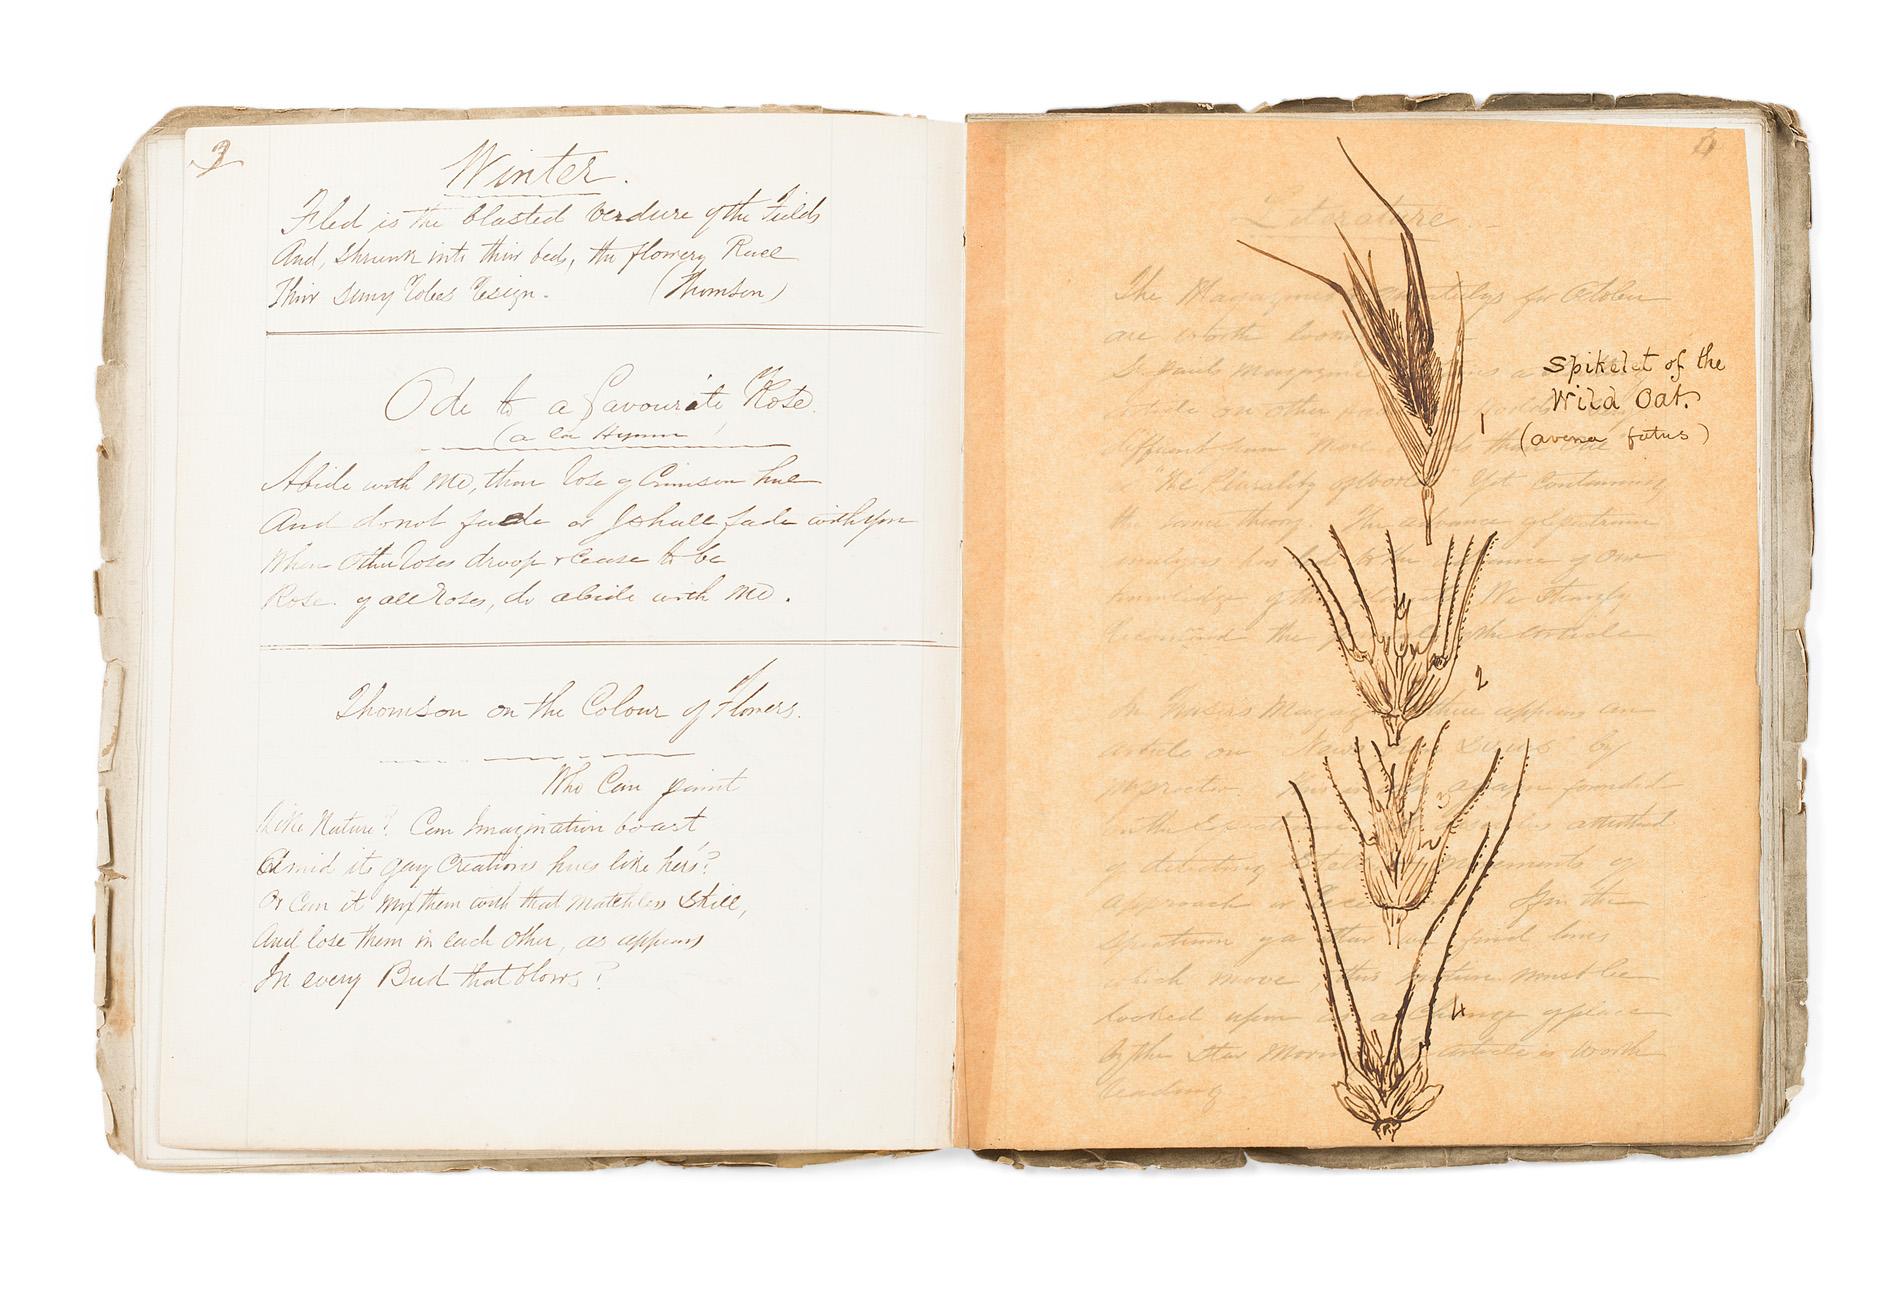 3
Winter.
Fled is the blasted verdure of the Fields
And, shrunk into their beds, the flowery Race
Their Sunny robes resign. (Thomson)
Ode to a favourite Rose.
(a la Hymn)
Abide with Me, thou rose of Crimson hue
And do not fade or I shall fade with you
When other roses droop & cease to be
Rose of all roses, do abide with Me.
Thomson on the Colour of Flowers.
Who Can paint
Like Nature? Can Imagination boast
Amid its gay Creations hues like hers?
Or Can it mix them with that matchless skill,
And lose them in each other, as appears
In every Bud that blows?
Literature
The Magazines for October
are worth
St Pauls Magazine a
article on other
different from
"The Plurality of Worlds" Yet containing
the same theory. The advance of Spectrum
analysis has of our
knowledge of the We strongly
recommend the the article
In Frasers Magazine there appears an
article on "News from Sirius" by
Mr Proctor. This is again founded
on the
of detecting movements of
approach or If in the
Spectrum of a star we find lines
which move, this motion must be
looked upon as a Change of place
by the Star article is worth
reading
Spikelet of the
Wild Oat.
(avena fatus)
1
2
3
4